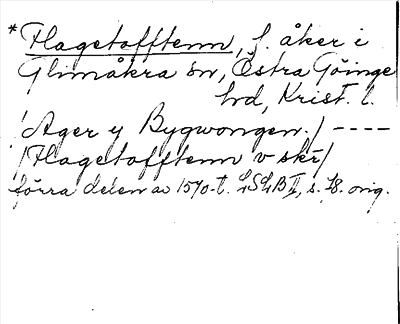 *Hagetofftenn, f. åker i
Glimåkra sn, Östra Göinge
hd, Krist. l.
/Ager y Bygwongen./ ----
/Hagetofftenn v skr/
förra delen av 1570-t. LSLB II, s. 78. orig.